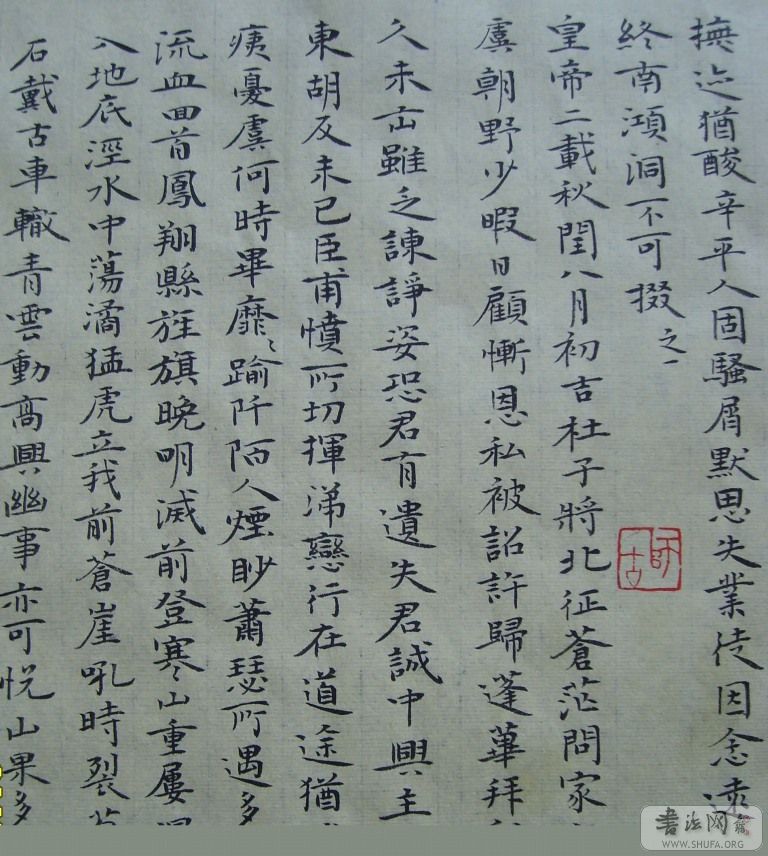 撫迹猶酸辛平人固騷屑默思失業徒因念遠
終南澒洞不可掇之一
皇帝二載秋閏八月初吉杜子將北征蒼茫問家
虞朝野少暇日顧慚恩私被詔許歸蓬蓽拜
久未出雖乏諫諍姿恐君有遺失君誠中興主
東胡反未已臣甫憤所切揮涕戀行在道途猶
痍憂虞何時畢靡〻踰阡陌人煙眇蕭瑟所遇多
流血回首鳳翔縣旌旗晚明滅前登寒山重屢
入地底涇水中蕩潏猛虎立我前蒼崖吼時裂
石戴古車轍青雲動高興幽事亦可悅山果多
師古
書法网
WWW.SHUFA.ORG